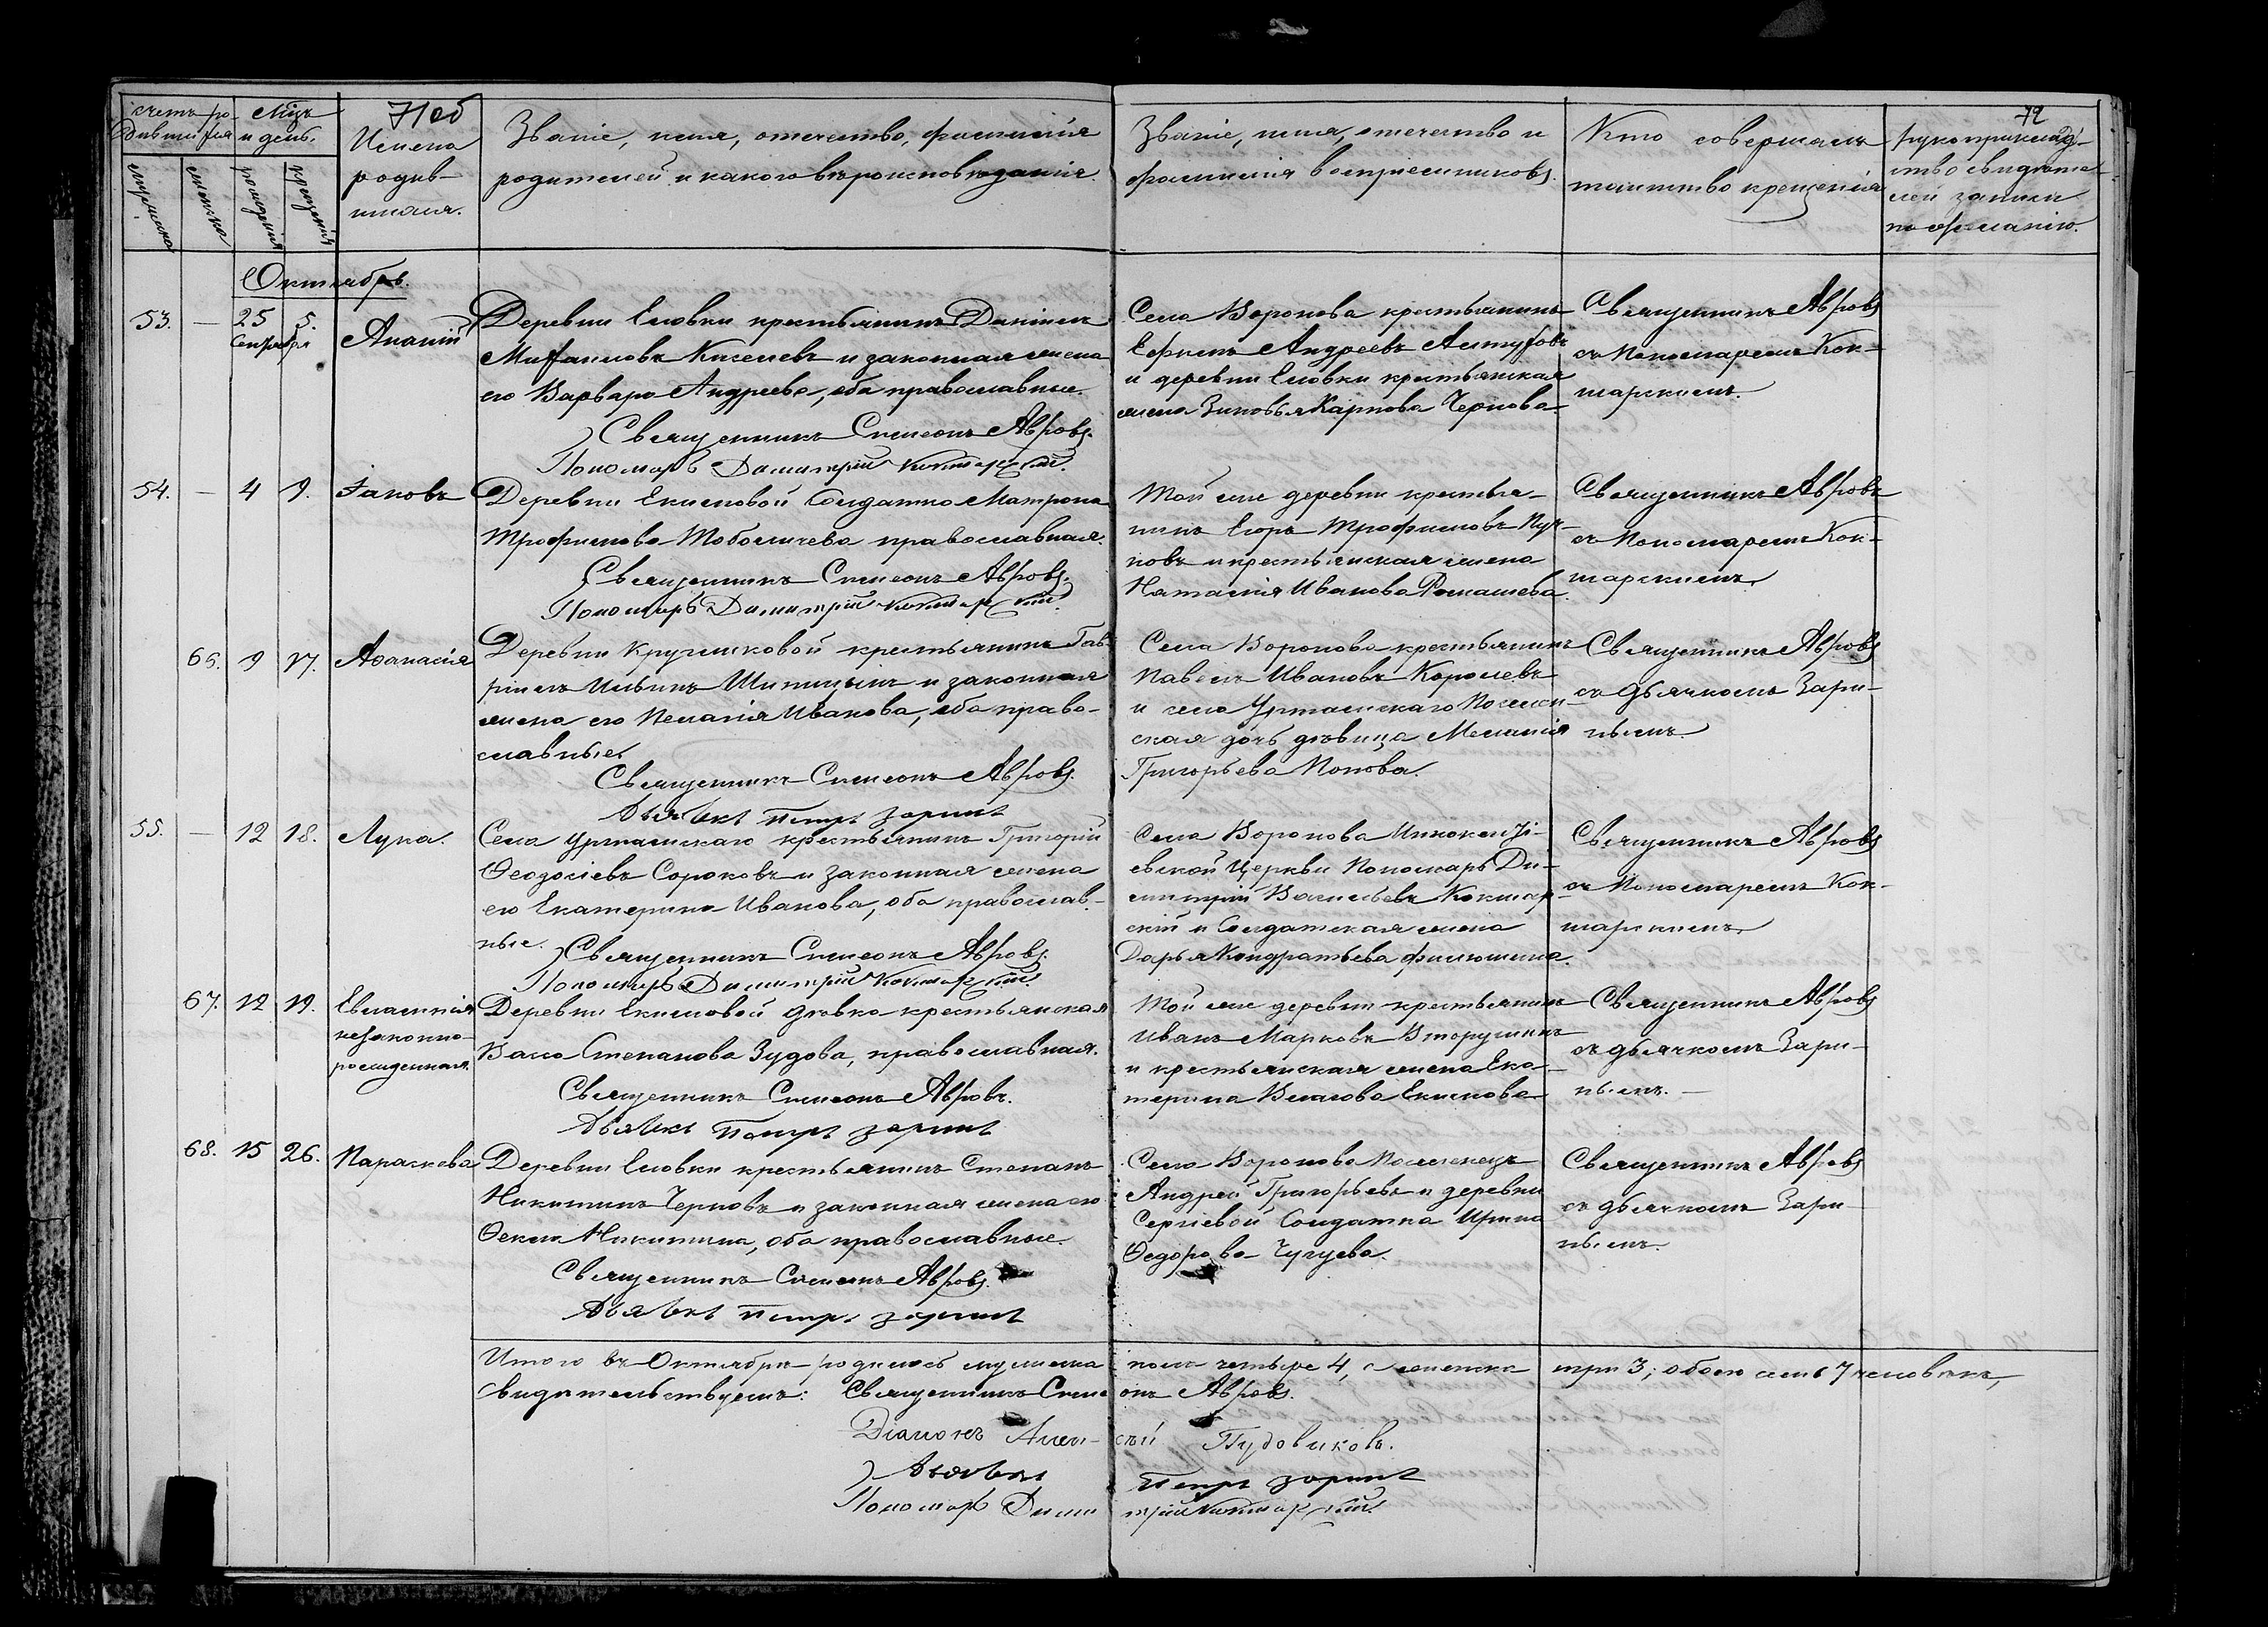 71об
72
Счетъ ро-
дившихся
Мѣцъ
и день.
мужеска
женска
рожденія
крещенія
Имена
родив-
шихся.
Званіе, имя, отечество, фамилія
родителей и какого вѣроисповѣданія.
Званіе, имя, отечество и
фамилія воспріемниковъ.
Кто совершалъ
таинство крещенія
Рукоприклад-
ство свидѣте-
лей записи
по желанію.
Октябрь.
53. — 25 5.
Сентября
Ананій
Деревни Еловки крестьянинъ Даніилъ
Михаиловъ Киселевъ и законная жена
его Варвара Андреева, оба православные.
Священникъ Симеонъ Авровъ.
Пономарь Димитрій Кокшарскій.
Села Воронова крестьянинъ
Ефимъ Андреевъ
и деревни Еловки крестьянская
жена Зиновья Карпова Чернова
Священникъ Авровъ
съ Пономаремъ Кок-
шарскимъ.
54. — 4 9. Іаковъ
Деревни Екимовой Солдатка Матрона
Трофимова Тоболжичева православная.
Священникъ Симеонъ Авровъ.
Пономарь Димитрій Кокшарскій.
Той же деревни крестья-
нинъ Егоръ Трофимовъ Пуч-
ковъ и крестьянская жена
Наталія Иванова Ромашева.
Священникъ Авровъ
съ Пономаремъ Кок-
шарскимъ.
66. 9 17. Аѳанасія
Деревни Кругликовой крестьянинъ Гав-
ріилъ Ильинъ Шипицынъ и законная
жена его Пелагія Иванова, оба право-
славные.
Священникъ Симеонъ Авровъ.
Дьячекъ Петръ Заринъ
Села Воронова крестьянинъ
Павелъ Ивановъ Королевъ
и села Уртамскаго Поселен-
ская дочь дѣвица Меланія
Григорьева Попова.
Священникъ Авровъ
съ дьячкомъ Зари-
нымъ.
55. — 12 18. Лука.
Села Уртамскаго крестьянинъ Григорій
Ѳеодосіевъ Сороковъ и законная жена
его Екатерина Иванова, оба православ-
ные.
Священникъ Симеонъ Авровъ.
Пономарь Димитрій Кокшарскій.
Села Воронова Иннокенті-
евской Церкви Пономарь Ди-
митрій Васильевъ Кокшар-
скій и Солдатская жена
Дарья Кондратьева Филюшина.
Священникъ Авровъ
съ Пономаремъ Кок-
шарскимъ.
67. 12 19. Евлампія
незаконно-
рожденная.
Деревни Екимовой дѣвка крестьянская
Васса Степанова Зудова, православная.
Священникъ Симеонъ Авровъ.
Дьячекъ Петръ Заринъ
Той же деревни крестьянинъ
Иванъ Марковъ Вторушинъ
и крестьянская жена Ека-
терина Власова Екимова
Священникъ Авровъ
съ дьячкомъ Зари-
нымъ. —
68. 15 26. Параскева
Деревни Еловки крестьянинъ Степанъ
Никитинъ Черновъ и законная жена его
Ѳекла Никитина, оба православные.
Священникъ Симеонъ Авровъ.
Дьячекъ Петръ Заринъ
Села Воронова Поселенецъ
Андрей Григорьевъ и деревни
Сергіевой Солдатка Ирина
Ѳедорова Чугуева.
Священникъ Авровъ
съ дьячкомъ Зари-
нымъ.
Итого въ Октябрѣ родилось мужеска пола четыре 4, а женска три 3; обоего семь 7 человѣкъ,
свидѣтельствуемъ: Священникъ Симеонъ Авровъ.
Діаконъ Алексѣй Пудовиковъ.
Дьячекъ Петръ Заринъ
Пономарь Димитрій Кокшарскій.